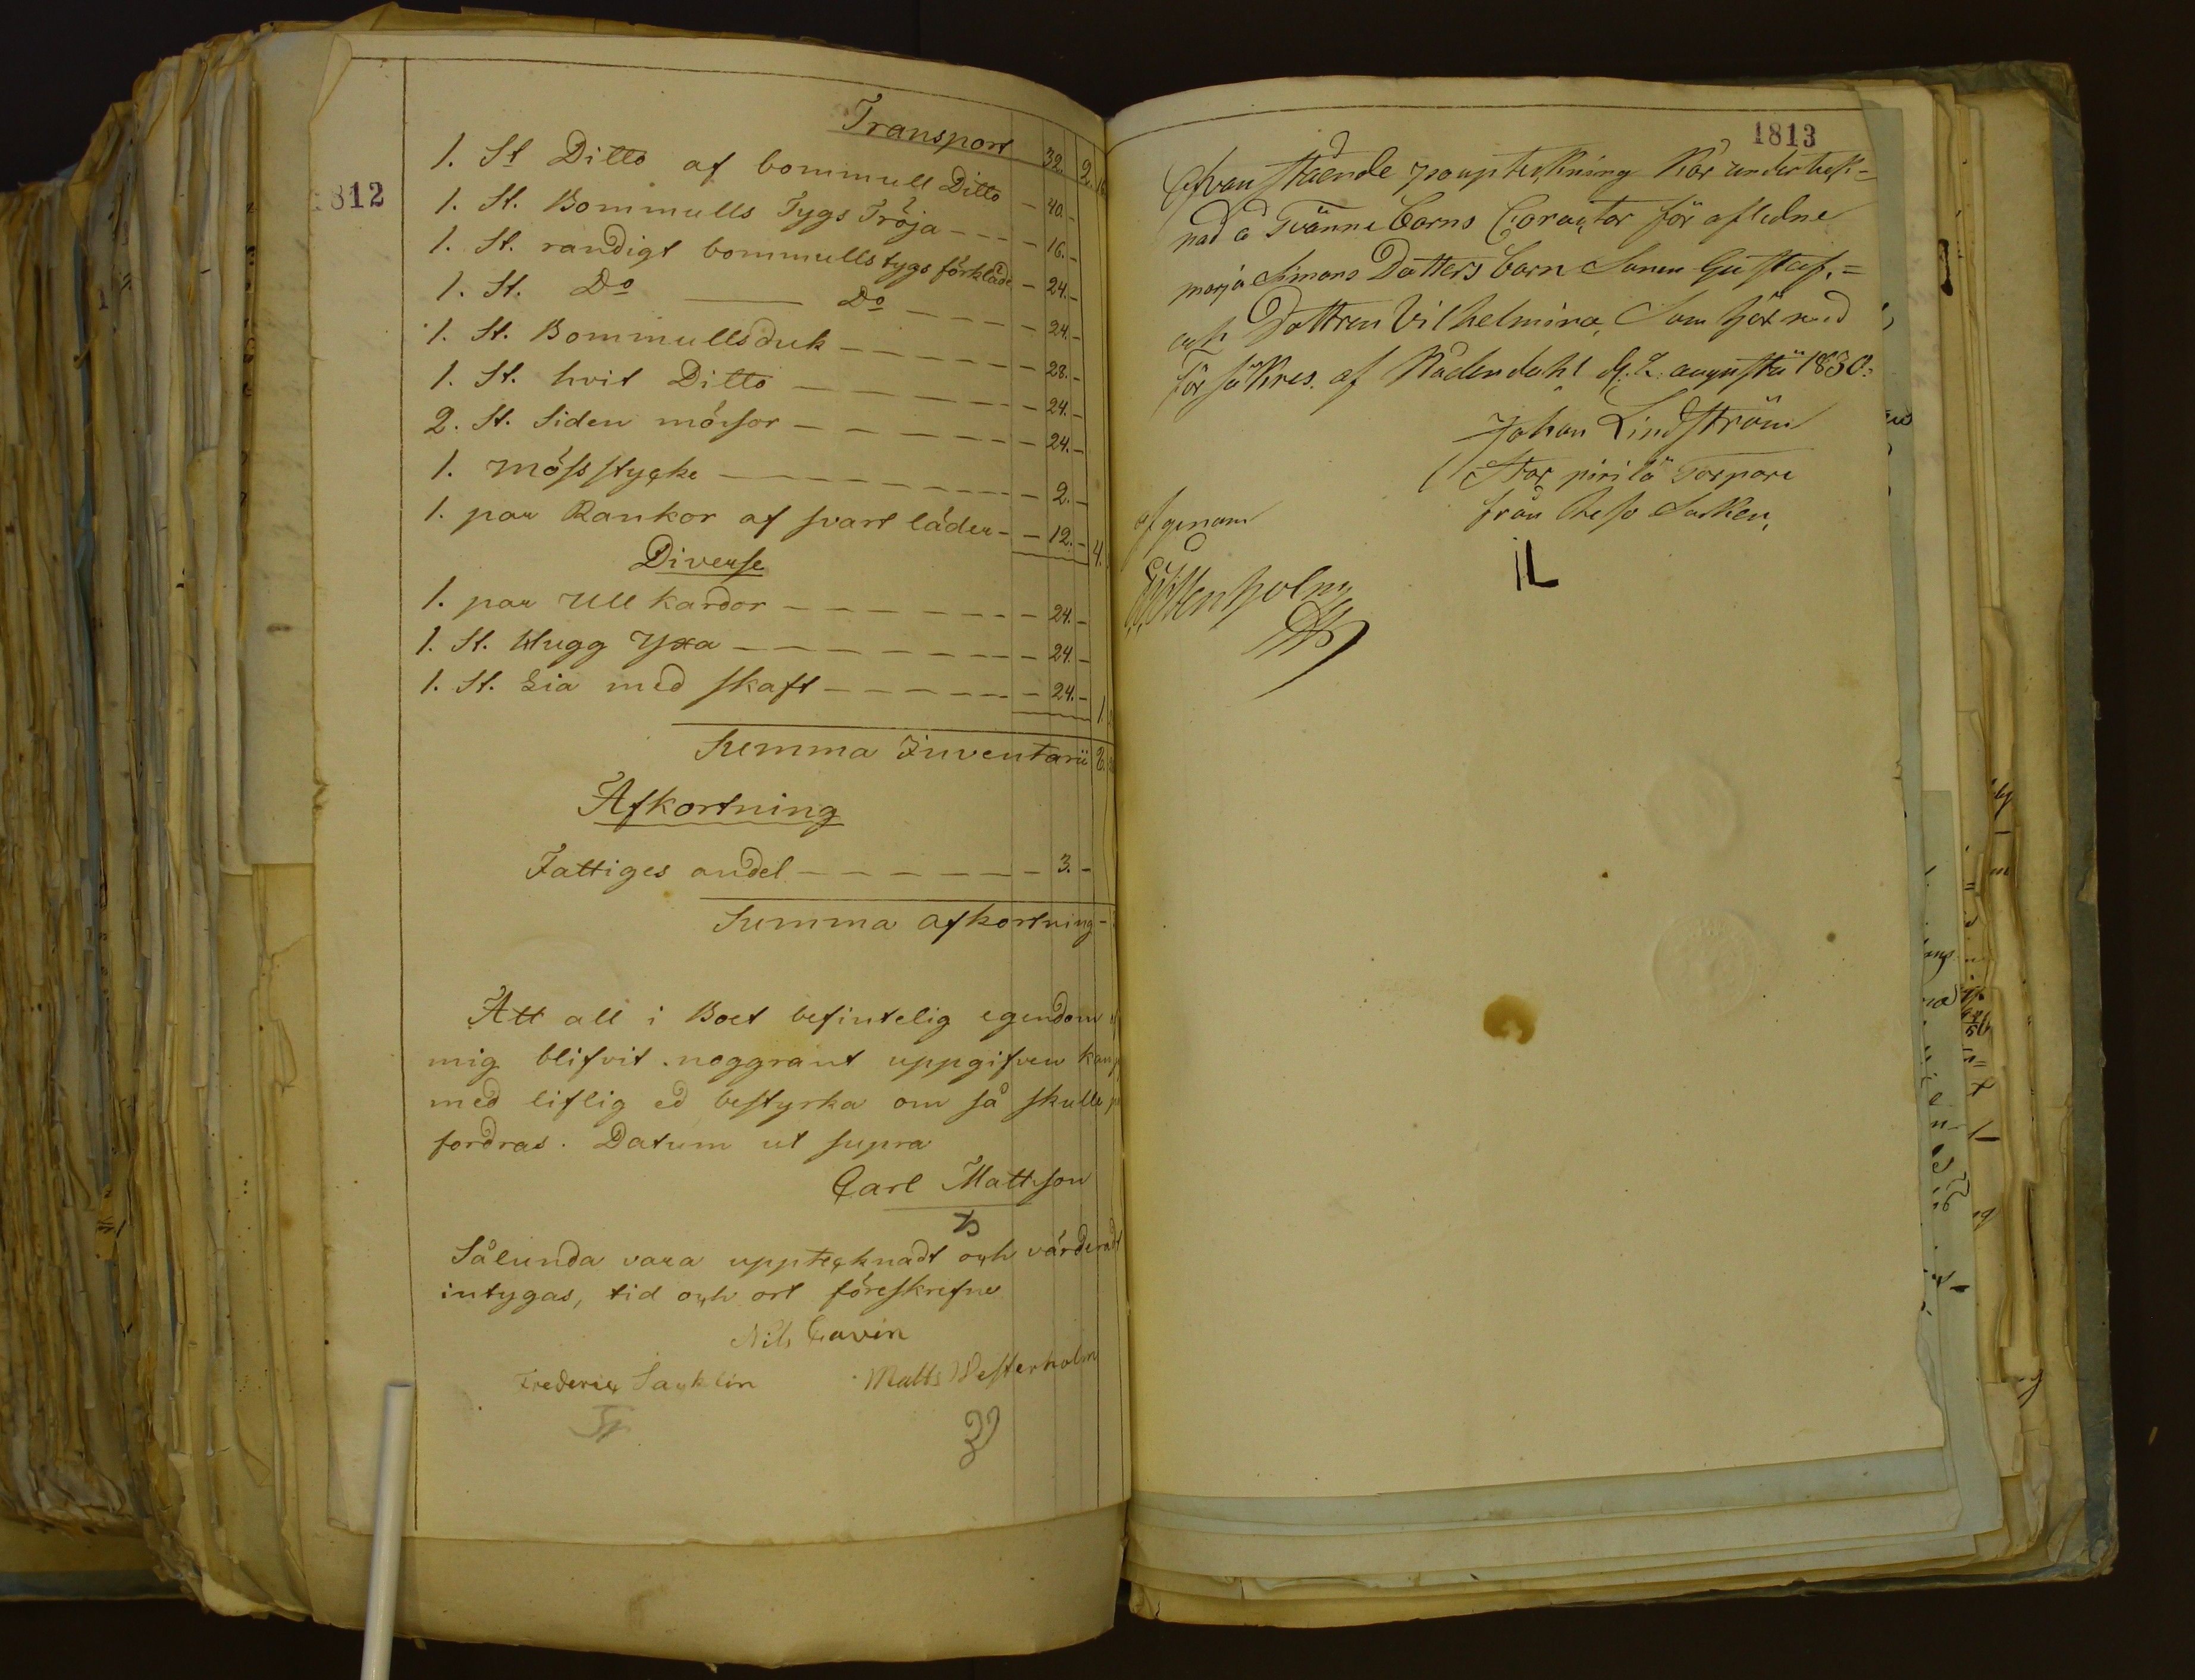 1812
Transport 32. 2.
1. St Ditto af bommull Ditto — 40. -
1. St. Bommulls Tygs Tröja — 16. -
1. St. randigt bommullstygs förkläde — 24. -
1. St. Do — Do — 24. -
1. St. Bommullsduk — 28. -
1. St. hvit Ditto — 24. -
2. St. Siden mössor — 24. -
1. Mössstycke — 2. -
1. par Kankor af svart läder — 12. - 4.
Diverse
1. par Ull kardor — 24. -
1. St. Hugg Yxa — 24. -
1. St. Lia med skaft — 24. - 1.
Summa Inventarii
Afkortning
Fattiges andel — 3. -
Summa afkortning -
Att all i Boet befintelig egendom
mig blifvit noggrant uppgifven kan
med liflig ed bestyrka om så skulle
fordras. Datum ut supra
Carl Mattsson
Sålunda vara upptecknadt och värderadt
intygas, tid och ort föreskrefne
Nils Gavin
Frederic Sacklin Matts Westerholm
1813
Ofvan stående
nad Tvänne Barns för afledne
marja Simons Dotters barn Sonen Gustaf =
och Dottren Vilhelmina, Som här med
försäkres. af Nådendahl d. 2. augusti 1830.
Johan Lindström
Stor pirilä Torpare
från Reso Socken,
afgenom
IL